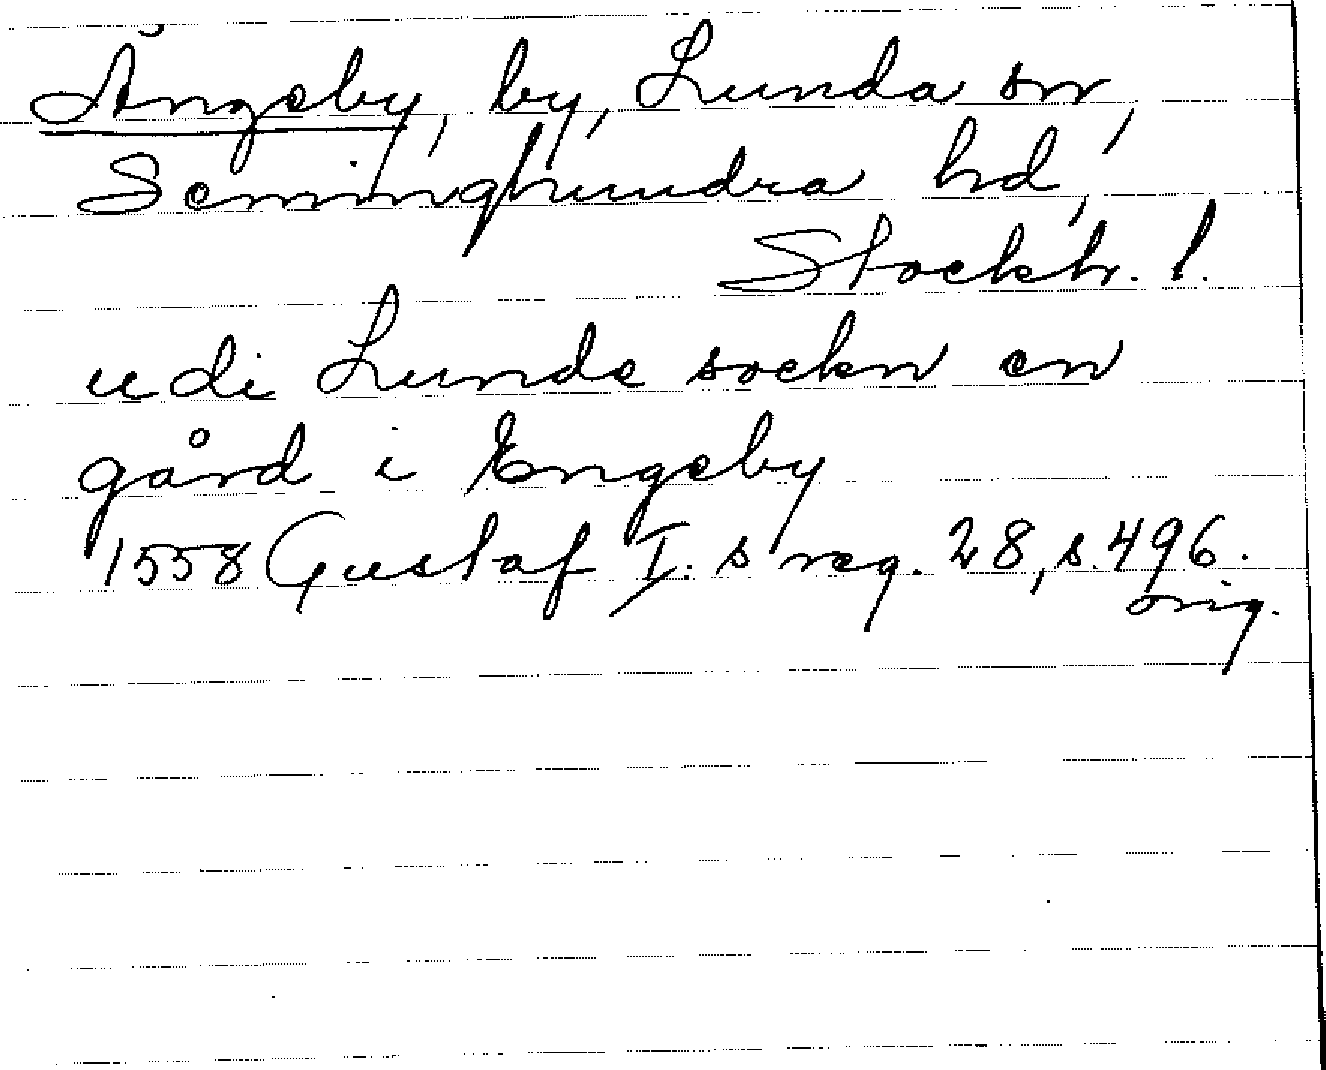 Ängeby, by, Lunda sn,
Seminghundra hd,
Stockh. l.
udi Lunde sockn en
gård i Engeby
1558 Gustaf I. s reg. 28, s. 496.
orig.